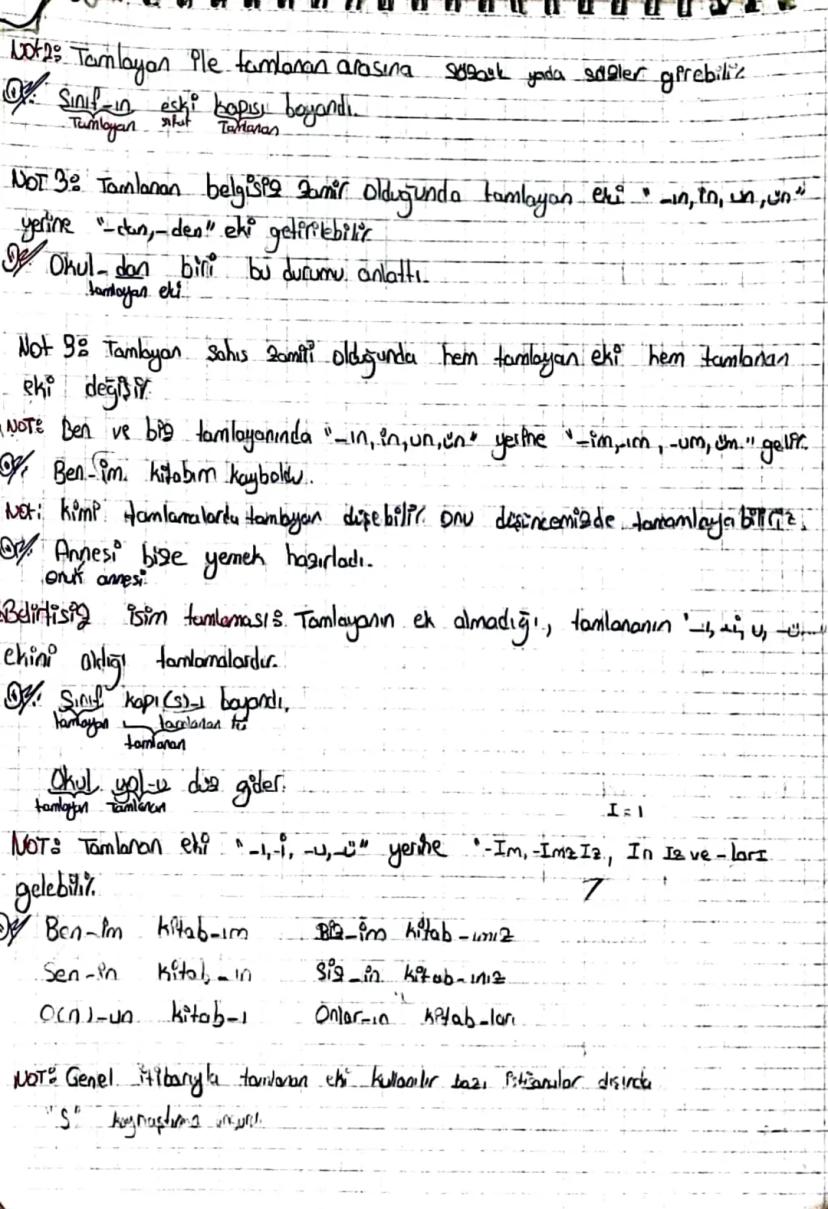 Not 2: Tamlayan ile tamlanan arasına sözcük yada sözler girebilir.
Ör: Sınıf-ın eski kapısı boyandı.
Tamlayan sıfat Tamlanan
NOT 3: Tamlanan belgisiz zamir olduğunda tamlayan eki "-ın, in, un, ün"
yerine "-dan, -den" eki getirilebilir.
Ör: Okul-dan biri bu durumu anlattı.
tamlayan eki
Not 9: Tamlayan şahıs zamiri olduğunda hem tamlayan eki hem tamlanan
eki değişir.
NOT: Ben ve biz tamlayanında "-ın, in, un, ün" yerine "-im, -ım, -um, üm." gelir.
Ör: Ben-im kitabım kayboldu.
Not: Kimi tamlamalarda tamlayan düşebilir. Onu düşüncemizde tamamlayabiliriz.
Ör: Annesi bize yemek hazırladı.
onun annesi
Belirtisiz isim tamlaması: Tamlayanın ek almadığı, tamlananın "-ı, -i, u, -ü"
ekini aldığı tamlamalardır.
Ör: Sınıf kapı(s)-ı boyandı.
tamlayan tamlanan eki
tamlanan
Okul yol-u düz gider.
tamlayan Tamlanan
I = 1
NOT: Tamlanan eki "-ı, -i, -u, -ü" yerine "-Im, -ImızIz, In Iz ve -ları
gelebilir.
Ör Ben-im kitab-ım Biz-im kitab-ımız
Sen-in kitab-ın Siz-in kitab-ınız
O(n)-un kitab-ı Onlar-ın kitab-ları
NOT: Genel itibarıyla tamlanan eki kullanılır bazı dışında
"S" kaynaştırma